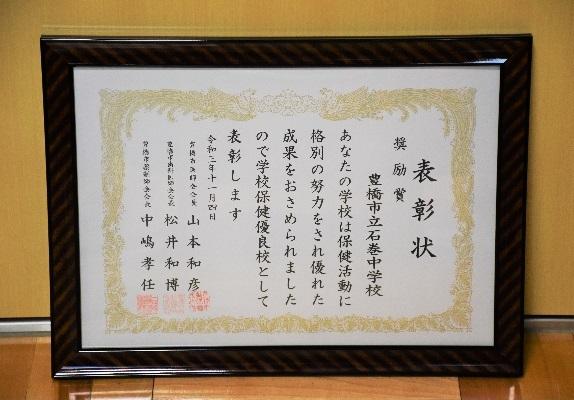 表彰状
奨励賞
豊橋市立石巻中学校
あなたの学校は保健活動に
格別の努力をされ優れた
成果をおさめられました
ので学校保健優良校として
表彰します
令和二年十一月四日
豊橋市医師会会長 山本和彦
豊橋市歯科医師会会長 松井和博
豊橋市薬剤師会会長 中嶋孝任